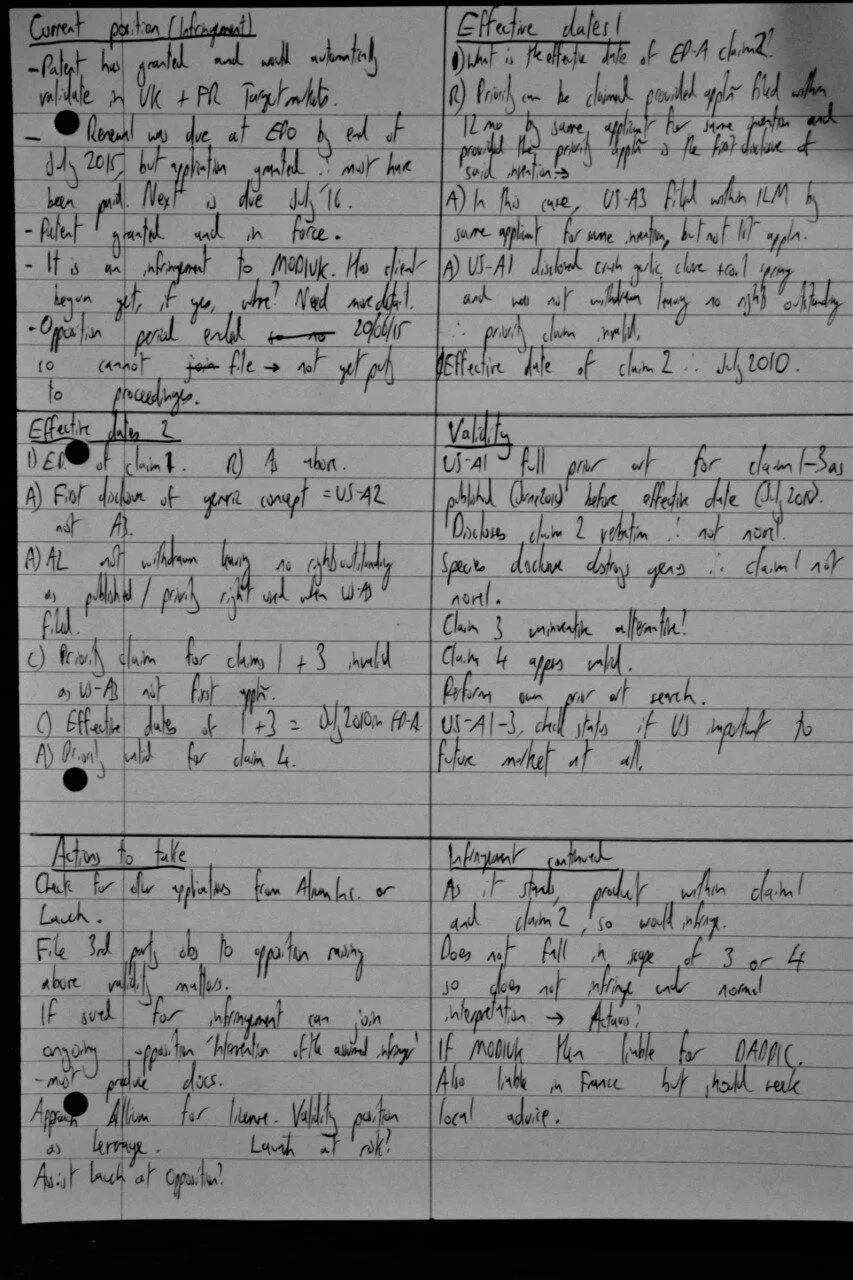 Current position (Infringement)
- Patent has granted and would automatically
validate in UK + FR Target markets.
- Renewal was due at EPO by end of
July 2015, but application granted ∴ must have
been paid. Next is due July '16.
- Patent granted and in force.
- It is an infringement to MODIUK. Has client
begun yet, if yes, where? Need more detail.
- Opposition period ended 20/06/15
so cannot join file → not yet party
to proceedings.
Effective dates 1
1) What is the effective date of EP-A claim 2?
R) Priority can be claimed provided appltn filed within
12 mo by same applicant for same invention and
provided the priority appltn is the first disclosure of
said invention →
A) In this case, US-A3 filed within 12M by
same applicant for same invention, but not 1st appln.
A) US-A1 disclosed crush garlic clove + coil spring
and was not withdrawn leaving no rights outstanding
∴ priority claim invalid.
Effective date of claim 2 ∴ July 2010.
Effective dates 2
1) ED of claim 1. R) As above.
A) First disclosure of generic concept = US-A2
not A3.
A) A2 not withdrawn leaving no rights outstanding
as published / priority right used when US-A3
filed.
C) Priority claim for claims 1 + 3 invalid
as US-A3 not first appltn.
C) Effective dates of 1 + 3 = July 2010 in EP-A
A) Priority valid for claim 4.
Validity
US-A1 full prior art for claim 1-3 as
published (June 2010) before effective date (July 2010).
Discloses claim 2 verbatim ∴ not novel.
Species disclosure destroys genus ∴ claim 1 not
novel.
Claim 3 uninventive alternative?
Claim 4 appears valid.
Perform own prior art search.
US-A1-3, check status if US important to
future market at all.
Actions to take
Check for other applications from Allium Inc. or
Lauch.
File 3rd party obs to opposition raising
above validity matters.
If sued for infringement can join
ongoing opposition 'Intervention of the assumed infringer'
- must produce docs.
Approach Allium for license. Validity position
as leverage. Launch at risk?
Assist Lauch at opposition?
Infringement continued
As it stands, product within claim 1
and claim 2, so would infringe.
Does not fall in scope of 3 or 4
so does not infringe under normal
interpretation → Actavis?
If MODIUK then liable for DADDIC.
Also liable in France but should seek
local advice.